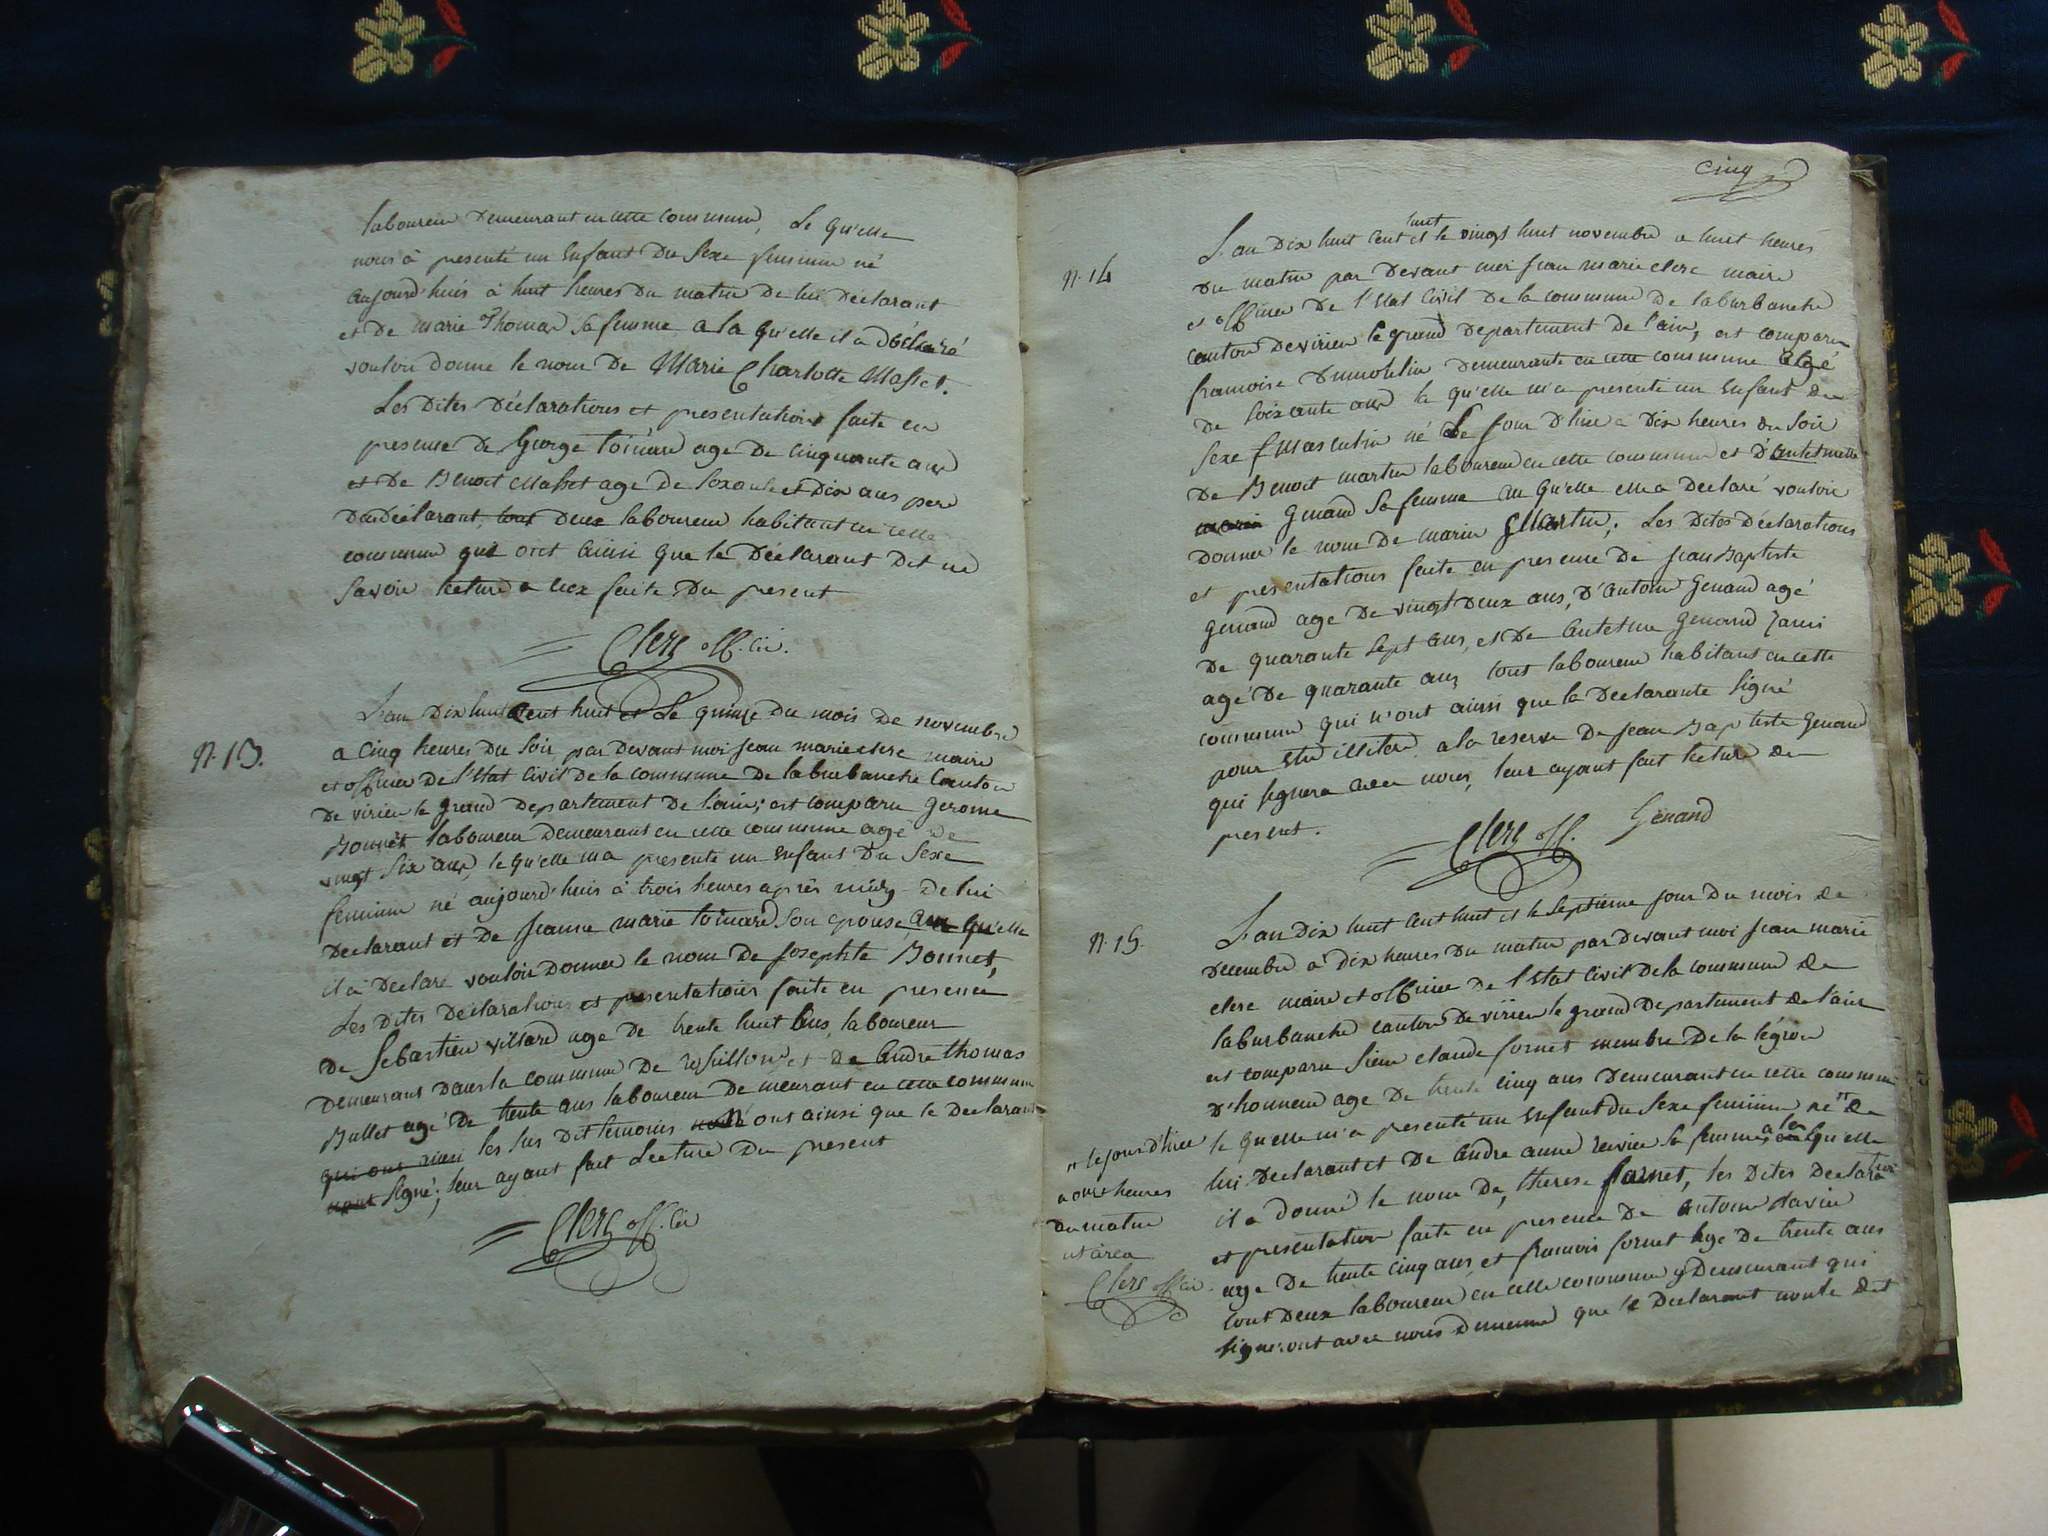 laboureur Demeurant en cette commune, Le qu'elle
nous à presenté un Enfant Du Sexe feminin né
aujourd'huis à huit heures Du matin De lui Déclarant
et De marie Thomas Sa femme a la qu'elle il a Déclaré
vouloir donne le nom De Marie Charlotte Masset.
Les Dites Déclarations et presentations faite en
presence De George toinard age De cinquante ans
et De Benoit Masset age De Soxante et Dix ans pere
Du Déclarant, tous deux laboureur habitant en cette
commune qui ont ainsi que le Déclarant Dit ne
Savoir lecture a eux faite Du present
Clerc off. civ.
n. 13.
L'an Dix huit Cent huit et Le quinze Du mois De novembre
a Cinq heures Du Soir par Devant moi Jean marie clerc maire
et officier De l'Etat Civil De la commune De laburbanche Canton
De virieu le grand Departement De l'ain; est comparu Gerome
Bonnet laboureur Demeurant en cette commune agé De
vingt Six ans, le qu'elle ma presente un Enfant Du Sexe
feminin né aujourd'huis à trois heures après midy De lui
Declarant et De Jeanne marie toinard Son epouse, au qu'elle
il à Declaré vouloir Donner le nom De Josephte Bonnet,
Les Dites Déclarations et presentations faite en presence
De Sebastien villard age De trente huit ans, laboureur
Demeurant Dans la commune De rossillon et De André thomas
Bullet agé De trente ans laboureur Demeurant en cette commune
qui ont les Sus Dit temoins ont ainsi que le Declarant
Signé; leur ayant fait Lecture Du present
Clerc off. civ
cinq
n. 14
huit
L'an Dix huit Cent et le vingt huit novembre a huit heures
Du matin par Devant moi Jean marie clerc maire
et officier De l'Etat Civil De la commune De laburbanche
canton De virieu le grand Departement De l'ain, est comparu
francoise Dumoulin Demeurante en cette commune agé
De Soixante ans le qu'elle m'a presenté un Enfant Du
Sexe Masculin né Le Jour D'hier à Dix heures Du Soir
De Benoit martin laboureur en cette commune et D'antelmette
marie Genand Sa femme au qu'elle elle a Declaré vouloir
Donner le nom De marin Martin; Les Dites Déclarations
et presentations faite en presence De Jean Baptiste
Genand age De vingt Deux ans, D'antoine Genand agé
De quarante Sept ans, et De antelme Genand Janin
agé De quarante ans tout laboureur habitant en cette
commune qui n'ont ainsi que la Declarante Signé
pour etre illiteré a la reserve De Jean Baptiste Genand
qui Signera avec nous, leur ayant fait lecture Du
present.
Clerc off. Genand
n. 15.
L'an Dix huit Cent huit et le Septième Jour Du mois De
Decembre à Dix heures Du matin par Devant moi Jean marie
clerc maire et officier De l'Etat Civil De la commune De
laburbanche canton De virieu le grand Departement De l'ain
est comparu Sieur claude fornet membre De la légion
D'honneur age De trente cinq ans Demeurant en cette commune
le quelle m'a presenté un Enfant du Sexe feminin né" De
lui Declarant et De andre anne revier Sa femme, a la qu'elle
il a Donné le nom De, therese fornet, les Dites Declaration
et presentation faite en presence De antoine
age De trente cinq ans, et francois fornet age De trente ans
tout Deux laboureur en cette commune y Demeurant qui
Signeront avec nous Dememe que le Declarant Dit
" le jour D'hier
a onze heures
du matin
Clerc off civ.